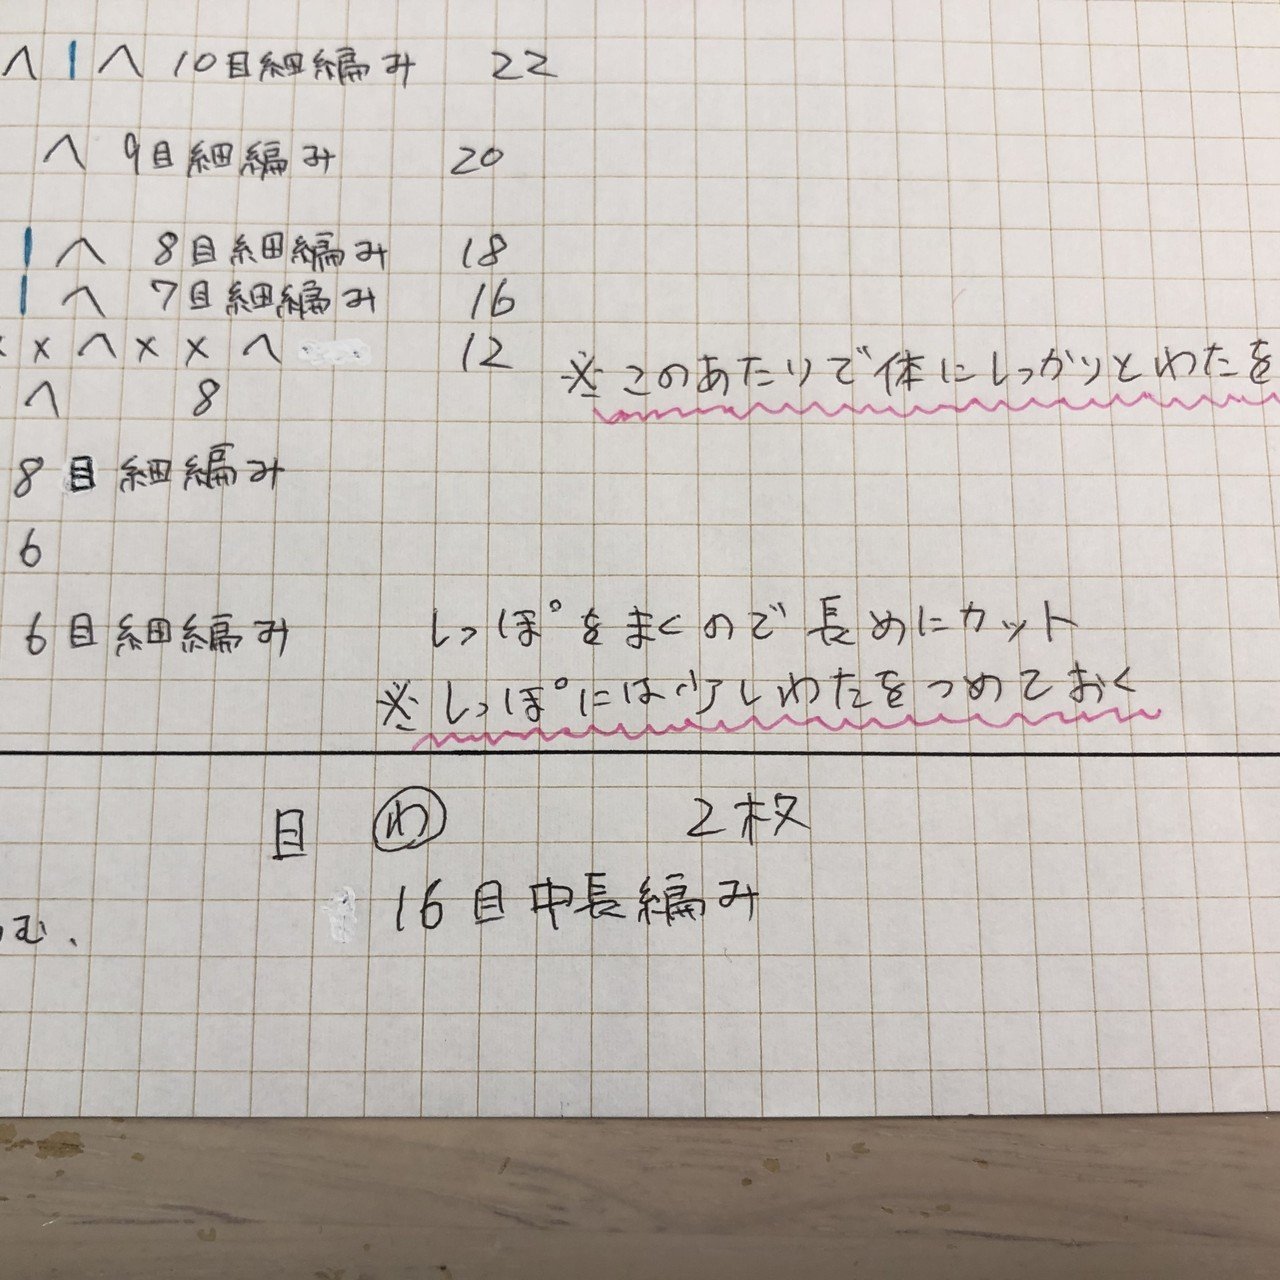 へ | へ 10目細編み 22
へ 9目細編み 20
| へ 8目細編み 18
| へ 7目細編み 16
× × へ × × へ 12
※このあたりで体にしっかりとわたを
へ 8
8目細編み
6
6目細編み しっぽをまくので長めにカット
※しっぽには少しわたをつめておく
目 わ 2枚
16目中長編み
む.